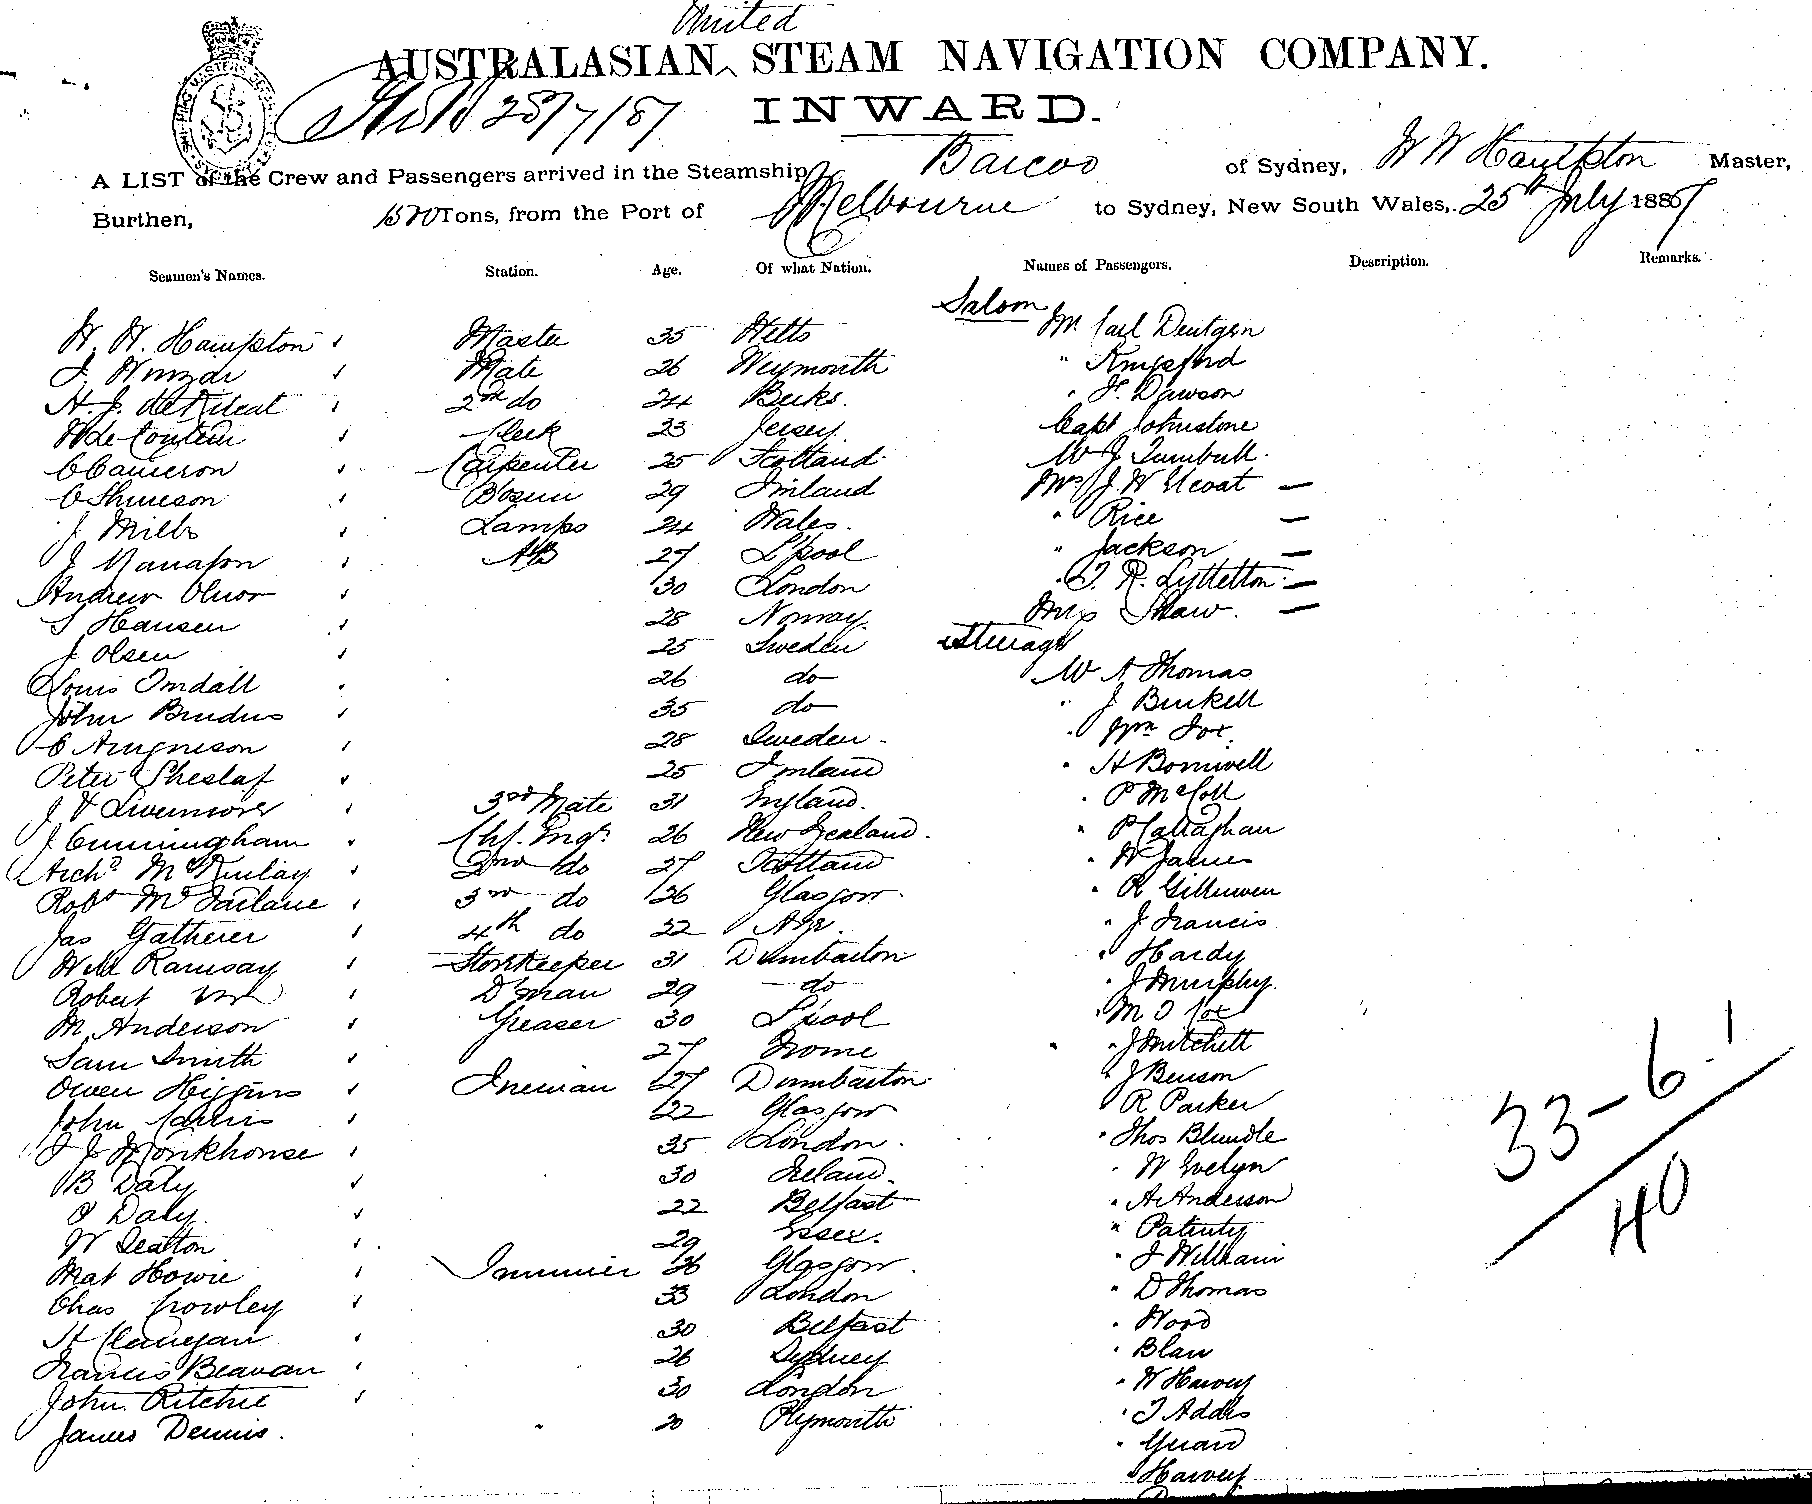 United
AUSTRALASIAN STEAM NAVIGATION COMPANY.
28/7/87
INWARD.
A LIST of the Crew and Passengers arrived in the Steamship Barcoo of Sydney, W W Hampton Master,
Burthen, 1520 Tons, from the Port of Melbourne to Sydney, New South Wales, 25th July 1887
Seamen's Names. Station. Age. Of what Nation. Names of Passengers. Description. Remarks.
Saloon
W. W. Hampton Master 35 Wilts Mr Carl
Mate 26 Weymouth " Kingsford
H. J. 2nd do 24 Berks. " F. Dawson
Clerk 23 Jersey Capt Johnstone
C Cameron Carpenter 25 Scotland W J Turnbull
Bosun 29 Finland Mrs J W —
J Mills Lamps 24 Wales. " Rice —
J AB 27 L'pool " Jackson —
Andrew 30 London " T. R. Lyttelton —
S Hansen 28 Norway Miss Shaw. —
J Olsen 25 Sweden Steerage
Louis 26 do W A Thomas
John 35 do " J
C 28 Sweden " Wm Fox
Peter 25 Finland " H
J V 3rd Mate 31 England. " P McColl
J Cunningham Chf. Engr. 26 New Zealand. " P Callaghan
Archd McKinlay 2nd do 27 Scotland " W James
Robt McFarlane 3rd do 26 Glasgow " R
Jas Gatherer 4th do 22 Ayr. " J Francis
Will Ramsay Storekeeper 31 Dumbarton " Hardy
Robert D'man 29 do " J Murphy
M. Anderson Greaser 30 L'pool " M Cox
Sam Smith 27 Frome " J Mitchell
Owen Higgins Fireman 27 Dumbarton " J Benson
John Harris 22 Glasgow " R Parker
J Monkhouse 35 London " Thos Blundle
B Daly 30 Ireland. " W Evelyn
Daly 22 Belfast " A Anderson
W Seaton 29 Essex. "
Mat Howie Trimmer 26 Glasgow " J William
Chas Crowley 33 London " D Thomas
H Flanegan 30 Belfast " Wood
Francis Beavan 26 Sydney "
John Ritchie 30 London " W Harvey
James Dennis. 20 Plymouth "
"
" Harvey
33-6.1
40